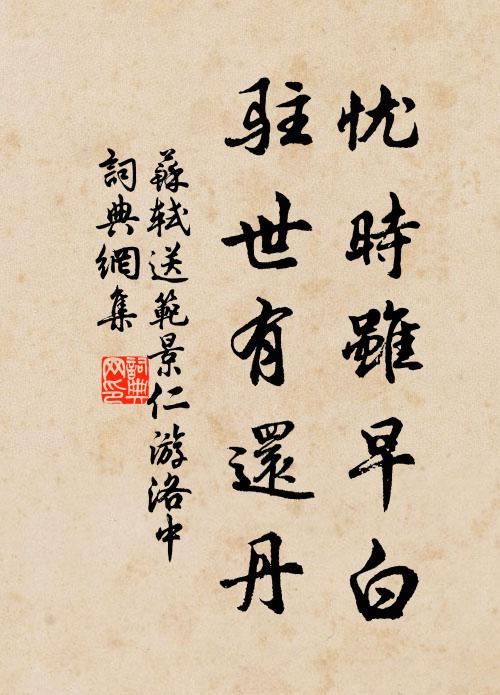 忧時雖早白
駐世有還丹
蘇軾送範景仁游洛中
詞典網集
詞典
网印